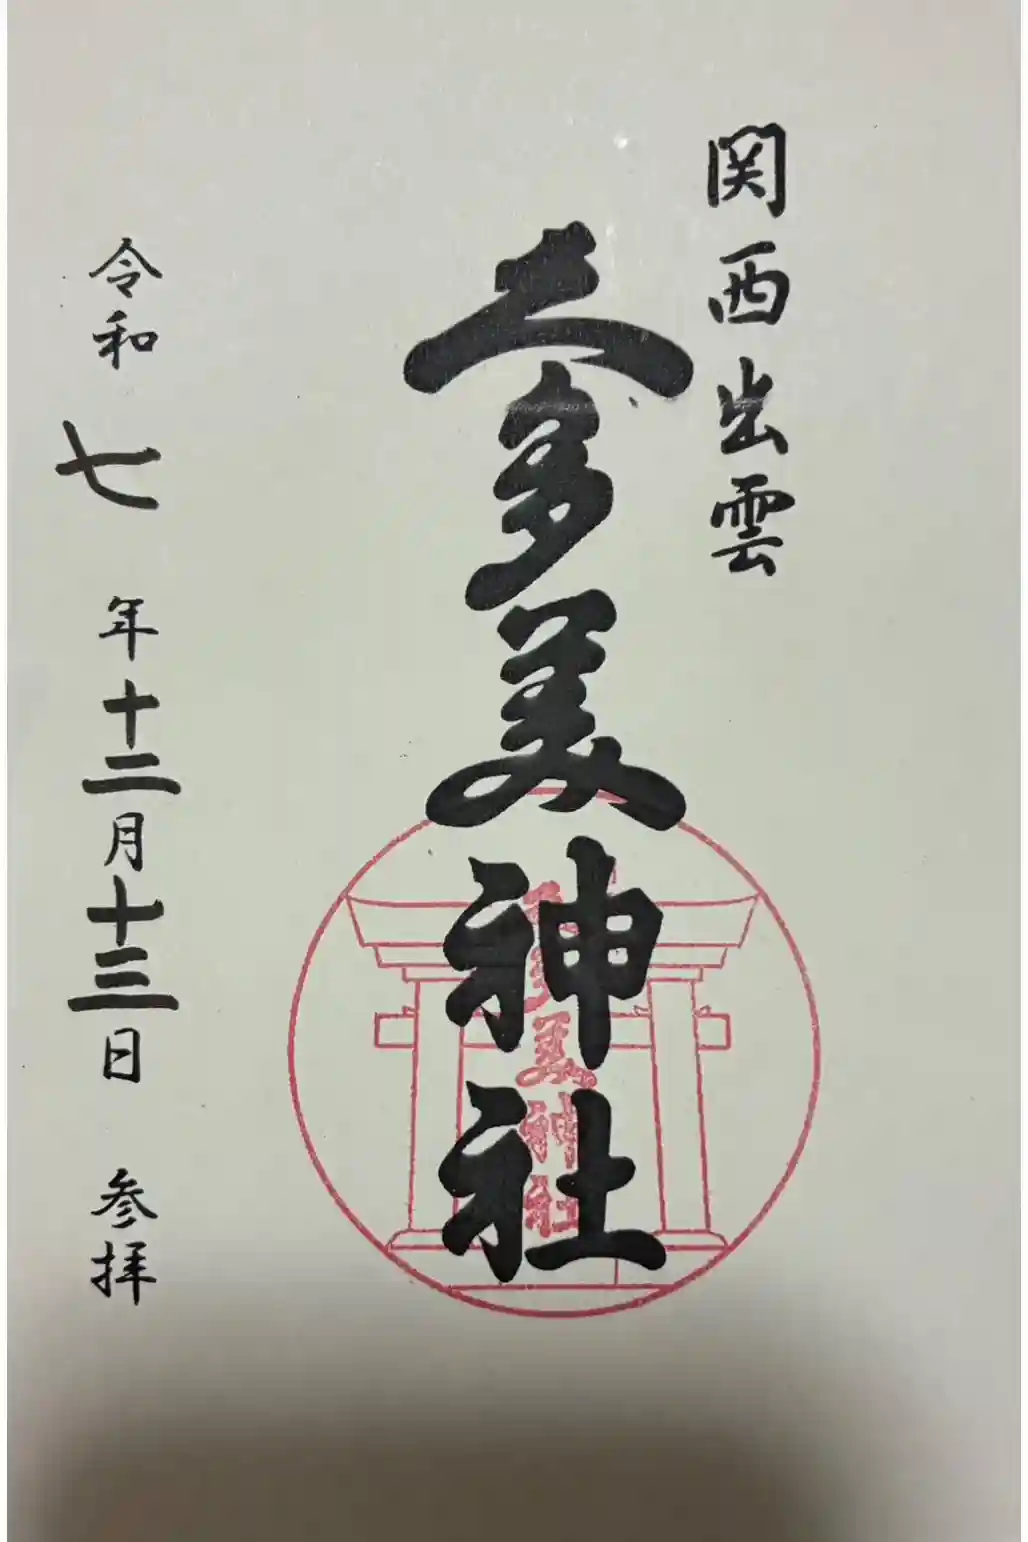 関西出雲
久多美神社
令和七年十二月十三日 参拝
久多美神社